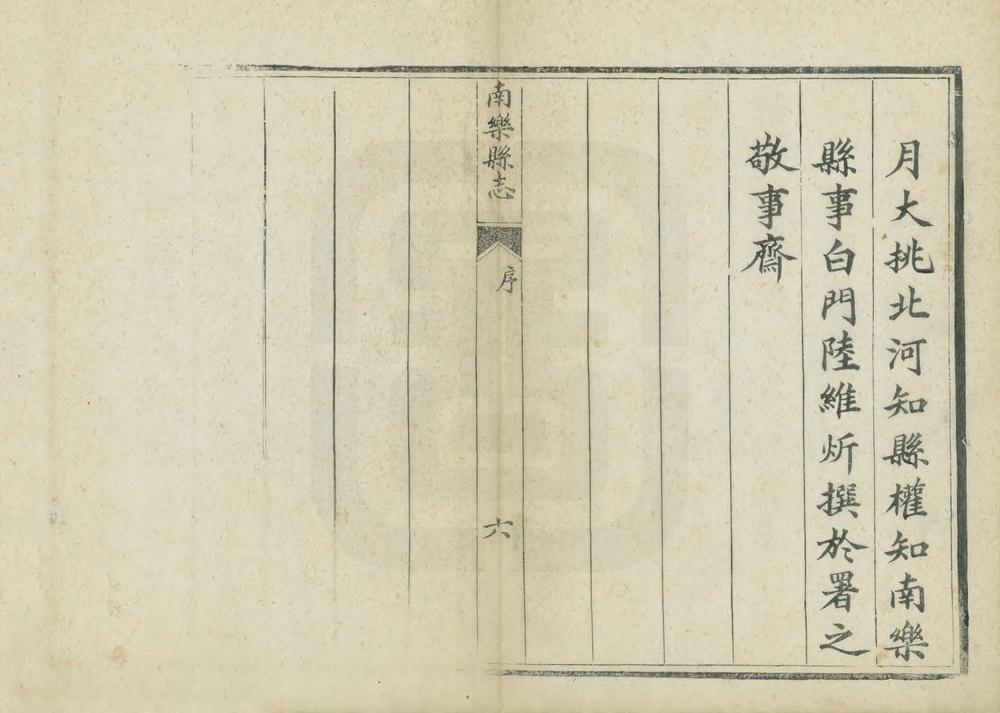 月大挑北河知縣權知南樂
縣事白門陸維炘撰於署之
敬事齋
南樂縣志
序
六